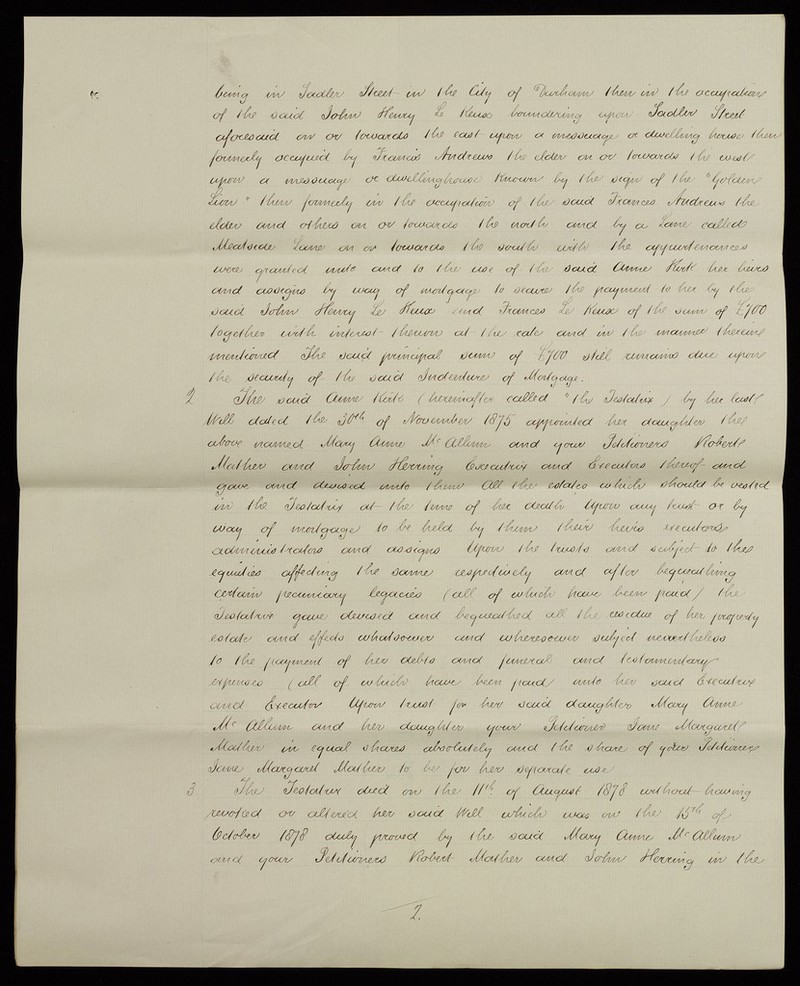 being in Sadler Street in the City of Durham then in the occupation
of the said John Henry Le Keux boundering upon Sadler Street
aforesaid on or towards the east upon a messuage or dwelling house then
formerly occupied by Francis Andrews the elder on or towards the west
upon a messuage or dwellinghouse known by the sign of the "Golden
Lion" then formerly in the occupation of the said Frances Andrews the
elder and others on or towards the north and by a Lane called
Meatside Lane on or towards the south with the appurtenances
were granted unto and to the use of the said Anne Kirk her heirs
and assigns by way of mortgage to secure the payment to her by the
said John Henry Le Keux and Frances Le Keux of the sum of £700
together with interest thereon at the rate and in the manner therein
mentioned The said principal sum of £700 still remains due upon
the security of the said Indenture of Mortgage.
2 The said Anne Kirk (hereinafter called "the Testatrix) by her last
Will dated the 30th of November 1875 appointed her daughter the
above named Mary Anne Mc Allum and your Petitioners Robert
Mather and John Herring Executrix and Executors thereof and
gave and devised unto them All the estates which should be vested
in the Testatrix at the time of her death Upon any trust or by
way of mortgage to be held by them their heirs executors
administrators and assigns Upon the trusts and subject to the
equities affecting the same respectively and after bequeathing
certain pecuniary legacies (all of which have been paid) the
Testatrix gave devised and bequeathed all the residue of her property
estate and effects whatsoever and wheresoever subject nevertheless
to the payment of her debts and funeral and testamentary
expenses (all of which have been paid unto her said Executrix
and Executor Upon trust for her said daughter Mary Anne
Mc Allum and her daughter your Petitioner Jane Margaret
Mather in equal shares absolutely and the share of your Petitioner
Jane Margaret Mather to be for her separate use
3 The Testatrix died on the 11th of August 1878 without having
revoked or altered her said Will which was on the 15th of
October 1878 duly proved by the said Mary Anne Mc Allum
and your Petitioners Robert Mather and John Herring in the
2.